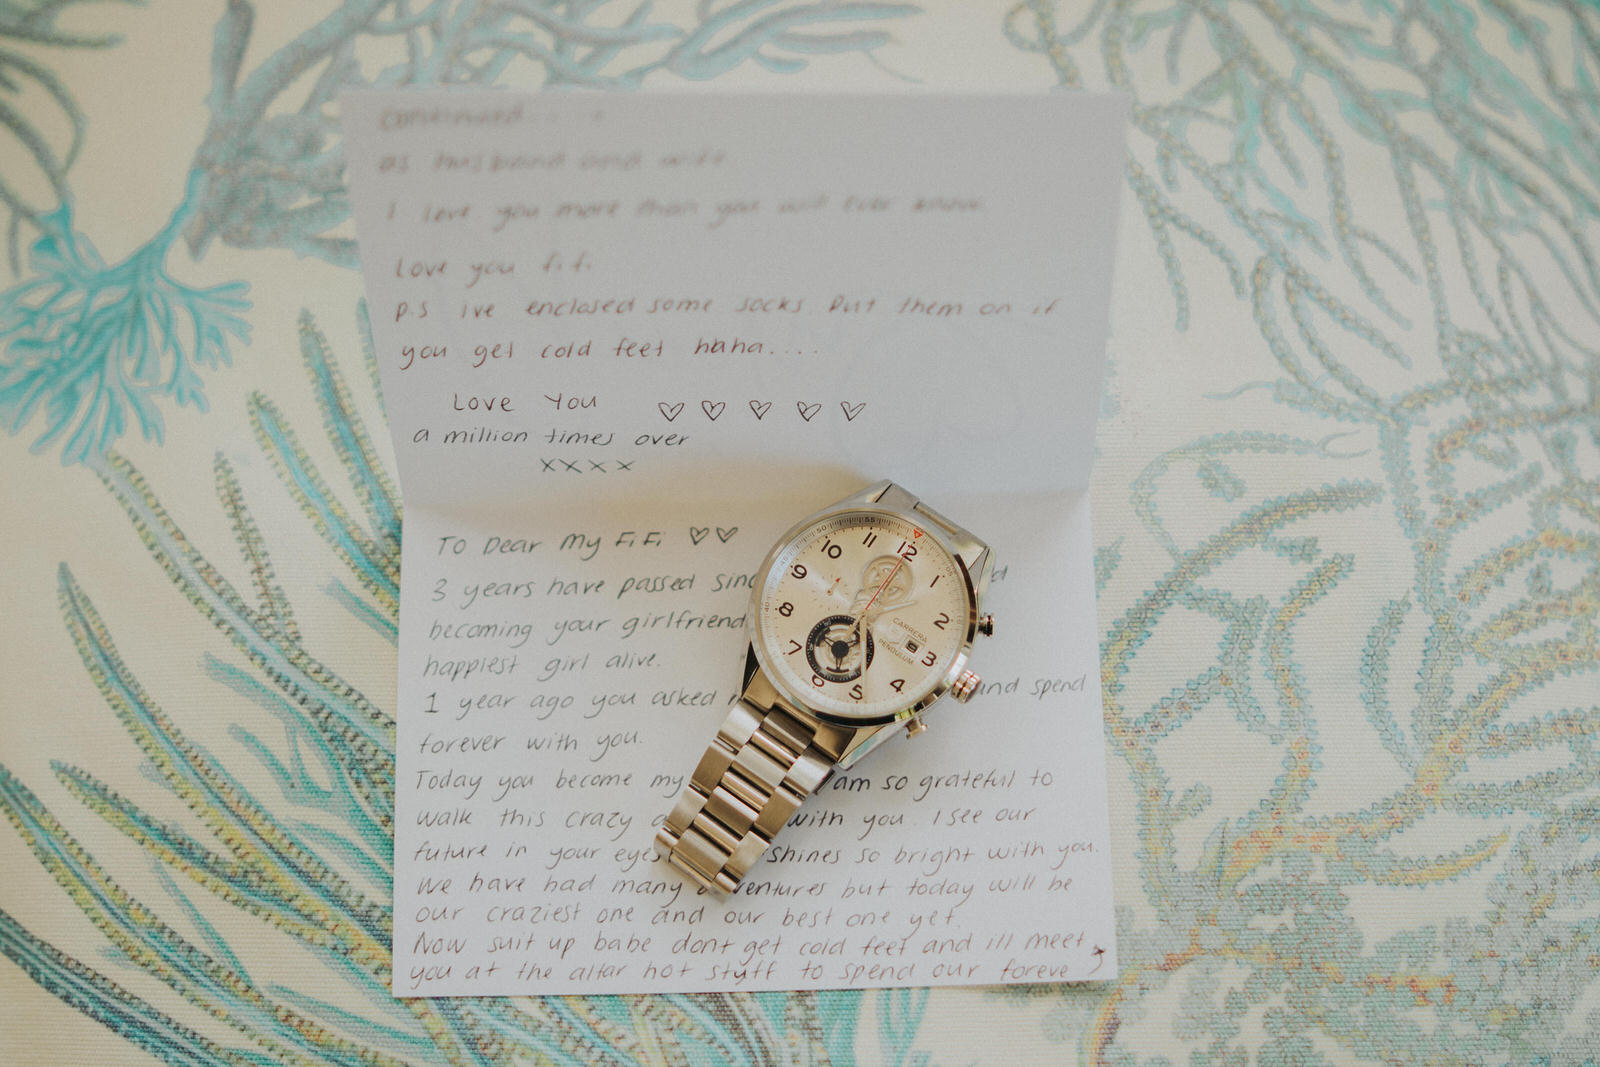 continued....
as husband and wife
I love you more than you will ever know.
Love you fifi
p.s ive enclosed some socks. Put them on if
you get cold feet haha....
Love You
a million times over
xxxx
To Dear My FiFi
3 years have passed
becoming your girlfriend
happiest girl alive.
1 year ago you asked and spend
forever with you.
Today you become my am so grateful to
walk this crazy with you. I see our
future in your eyes shines so bright with you.
We have had many but today will be
our craziest one and our best one yet.
Now suit up babe dont get cold feet and ill meet
you at the altar hot stuff to spend our foreve
55
50
12
11
10
9
8
7
6
5
4
3
2
1
CARRERA
PENDULUM